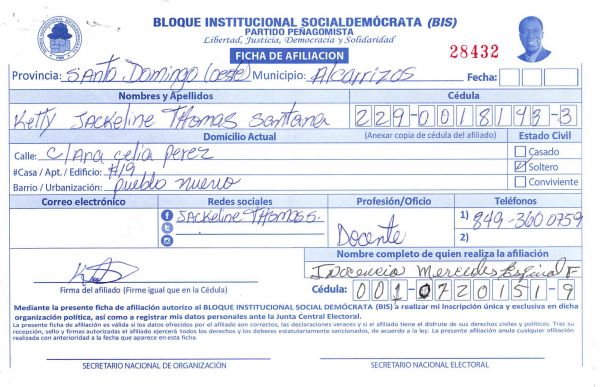 BLOQUE INSTITUCIONAL SOCIALDEMÓCRATA (BIS)
PARTIDO PEÑAGOMISTA
Libertad, Justicia, Democracia y Solidaridad
FICHA DE AFILIACION
28432
Provincia: Santo Domingo (oeste) Municipio: Alcarrizos Fecha:
Nombres y Apellidos Cédula
Ketty Jackeline Thomas Santana 229-0018143-3
Domicilio Actual (Anexar copia de cédula del afiliado) Estado Civil
Calle: C/Ana Celia Perez Casado
#Casa / Apt. / Edificio: #19 Soltero
Barrio / Urbanización: Pueblo Nuevo Conviviente
Correo electrónico Redes sociales Profesión/Oficio Teléfonos
Jackeline Thomas S. Docente 1) 849-360 0759
2)
Nombre completo de quien realiza la afiliación
Inocencia Mercedes F
Firma del afiliado (Firme igual que en la Cédula) Cédula: 001-0720151-9
Mediante la presente ficha de afiliación autorizo al BLOQUE INSTITUCIONAL SOCIAL DEMÓCRATA (BIS) a realizar mi inscripción única y exclusiva en dicha
organización política, así como a registrar mis datos personales ante la Junta Central Electoral.
La presente ficha de afiliación es válida si los datos ofrecidos por el afiliado son correctos, las declaraciones veraces y si el afiliado tiene el disfrute de sus derechos civiles y políticos. Tras su
recepción, sello y firmas autorizadas el afiliado ejercerá todos los derechos y los deberes estatutariamente sancionados, de acuerdo a la ley. La presente afiliación anula cualquier afiliación
realizada con anterioridad a la fecha que aparece en esta ficha.
SECRETARIO NACIONAL DE ORGANIZACIÓN SECRETARIO NACIONAL ELECTORAL